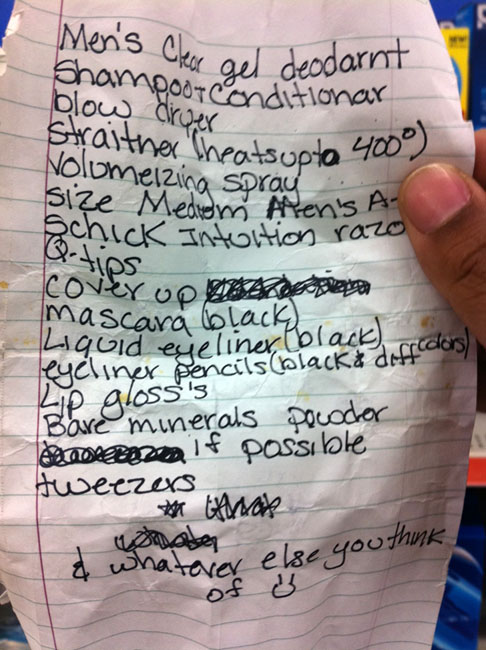 Men's Clear gel deodarnt
Shampoo + Conditionar
blow dryer
Straitner (heats upto 400°)
Volumeizing spray
size Medium Men's A-
Schick Intuition razo
Q-tips
cover up
mascara (black)
Liquid eyeliner (black)
eyeliner pencils (black & diff colors)
Lip gloss's
Bare minerals powder
if possible
tweezers
& whatever else you think
of